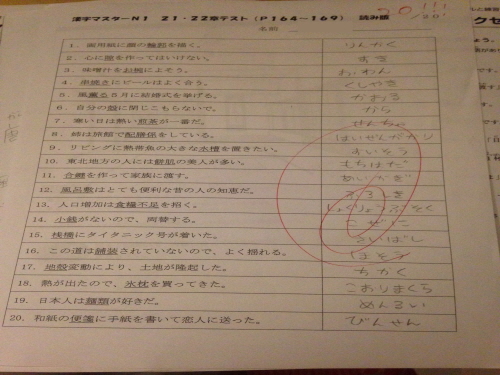 漢字マスターN1 21・22章テスト(P164~169) 読み編
20!!!
/20
名前
1. 画用紙に顔の輪郭を描く。 りんかく
2. 心に隙を作ってはいけない。 すき
3. 味噌汁をお椀によそう。 おわん
4. 串焼きにビールはよく合う。 くしやき
5. 風薫る5月に結婚式を挙げる。 かおる
6. 自分の殻に閉じこもらないで。 から
7. 寒い日は熱い煎茶が一番だ。 せんちゃ
8. 姉は旅館で配膳係をしている。 はいぜんがかり
9. リビングに熱帯魚の大きな水槽を置きたい。 すいそう
10. 東北地方の人には餅肌の美人が多い。 もちはだ
11. 合鍵を作って家族に渡す。 あいかぎ
12. 風呂敷はとても便利な昔の人の知恵だ。 ふろしき
13. 人口増加は食糧不足を招く。 しょくりょうぶそく
14. 小銭がないので、両替する。 こぜに
15. 桟橋にタイタニック号が着いた。 さんばし
16. この道は舗装されていないので、よく揺れる。 ほそう
17. 地殻変動により、土地が隆起した。 ちかく
18. 熱が出たので、氷枕を買ってきた。 こおりまくら
19. 日本人は麺類が好きだ。 めんるい
20. 和紙の便箋に手紙を書いて恋人に送った。 びんせん